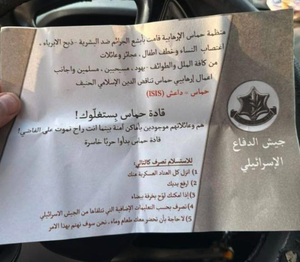 منظمة حماس الإرهابية قامت بأبشع الجرائم ضد البشرية - ذبح الابرياء ،
اغتصاب النساء وخطف أطفال، عجائز وعائلات
من كافة الملل والطوائف - يهود، مسيحيين، مسلمين واجانب
اعمال إرهابيي حماس تناقض الدين الإسلامي الحنيف
حماس = داعش (ISIS)
قادة حماس يستغلّوك!
هم وعائلاتهم موجودين بأماكن امنة بينما انت راح تموت على الفاضي!
قادة يدأوا حربًا خاسرة
للإستسلام تصرف كالتالي:
1) انزل كل العتاد العسكرية عنك
2) ارفع يديك
3) إذا امكنك لوّح بخرقة بيضاء
4) تصرف بحسب التعليمات الإضافية التي تتلقاها من الجيش الإسرائيلي
5) لا حاجة بأن تحضر معك طعام وماء، نحن سوف نهتم بهذا الامر
جيش الدفاع
الإسرائيلي